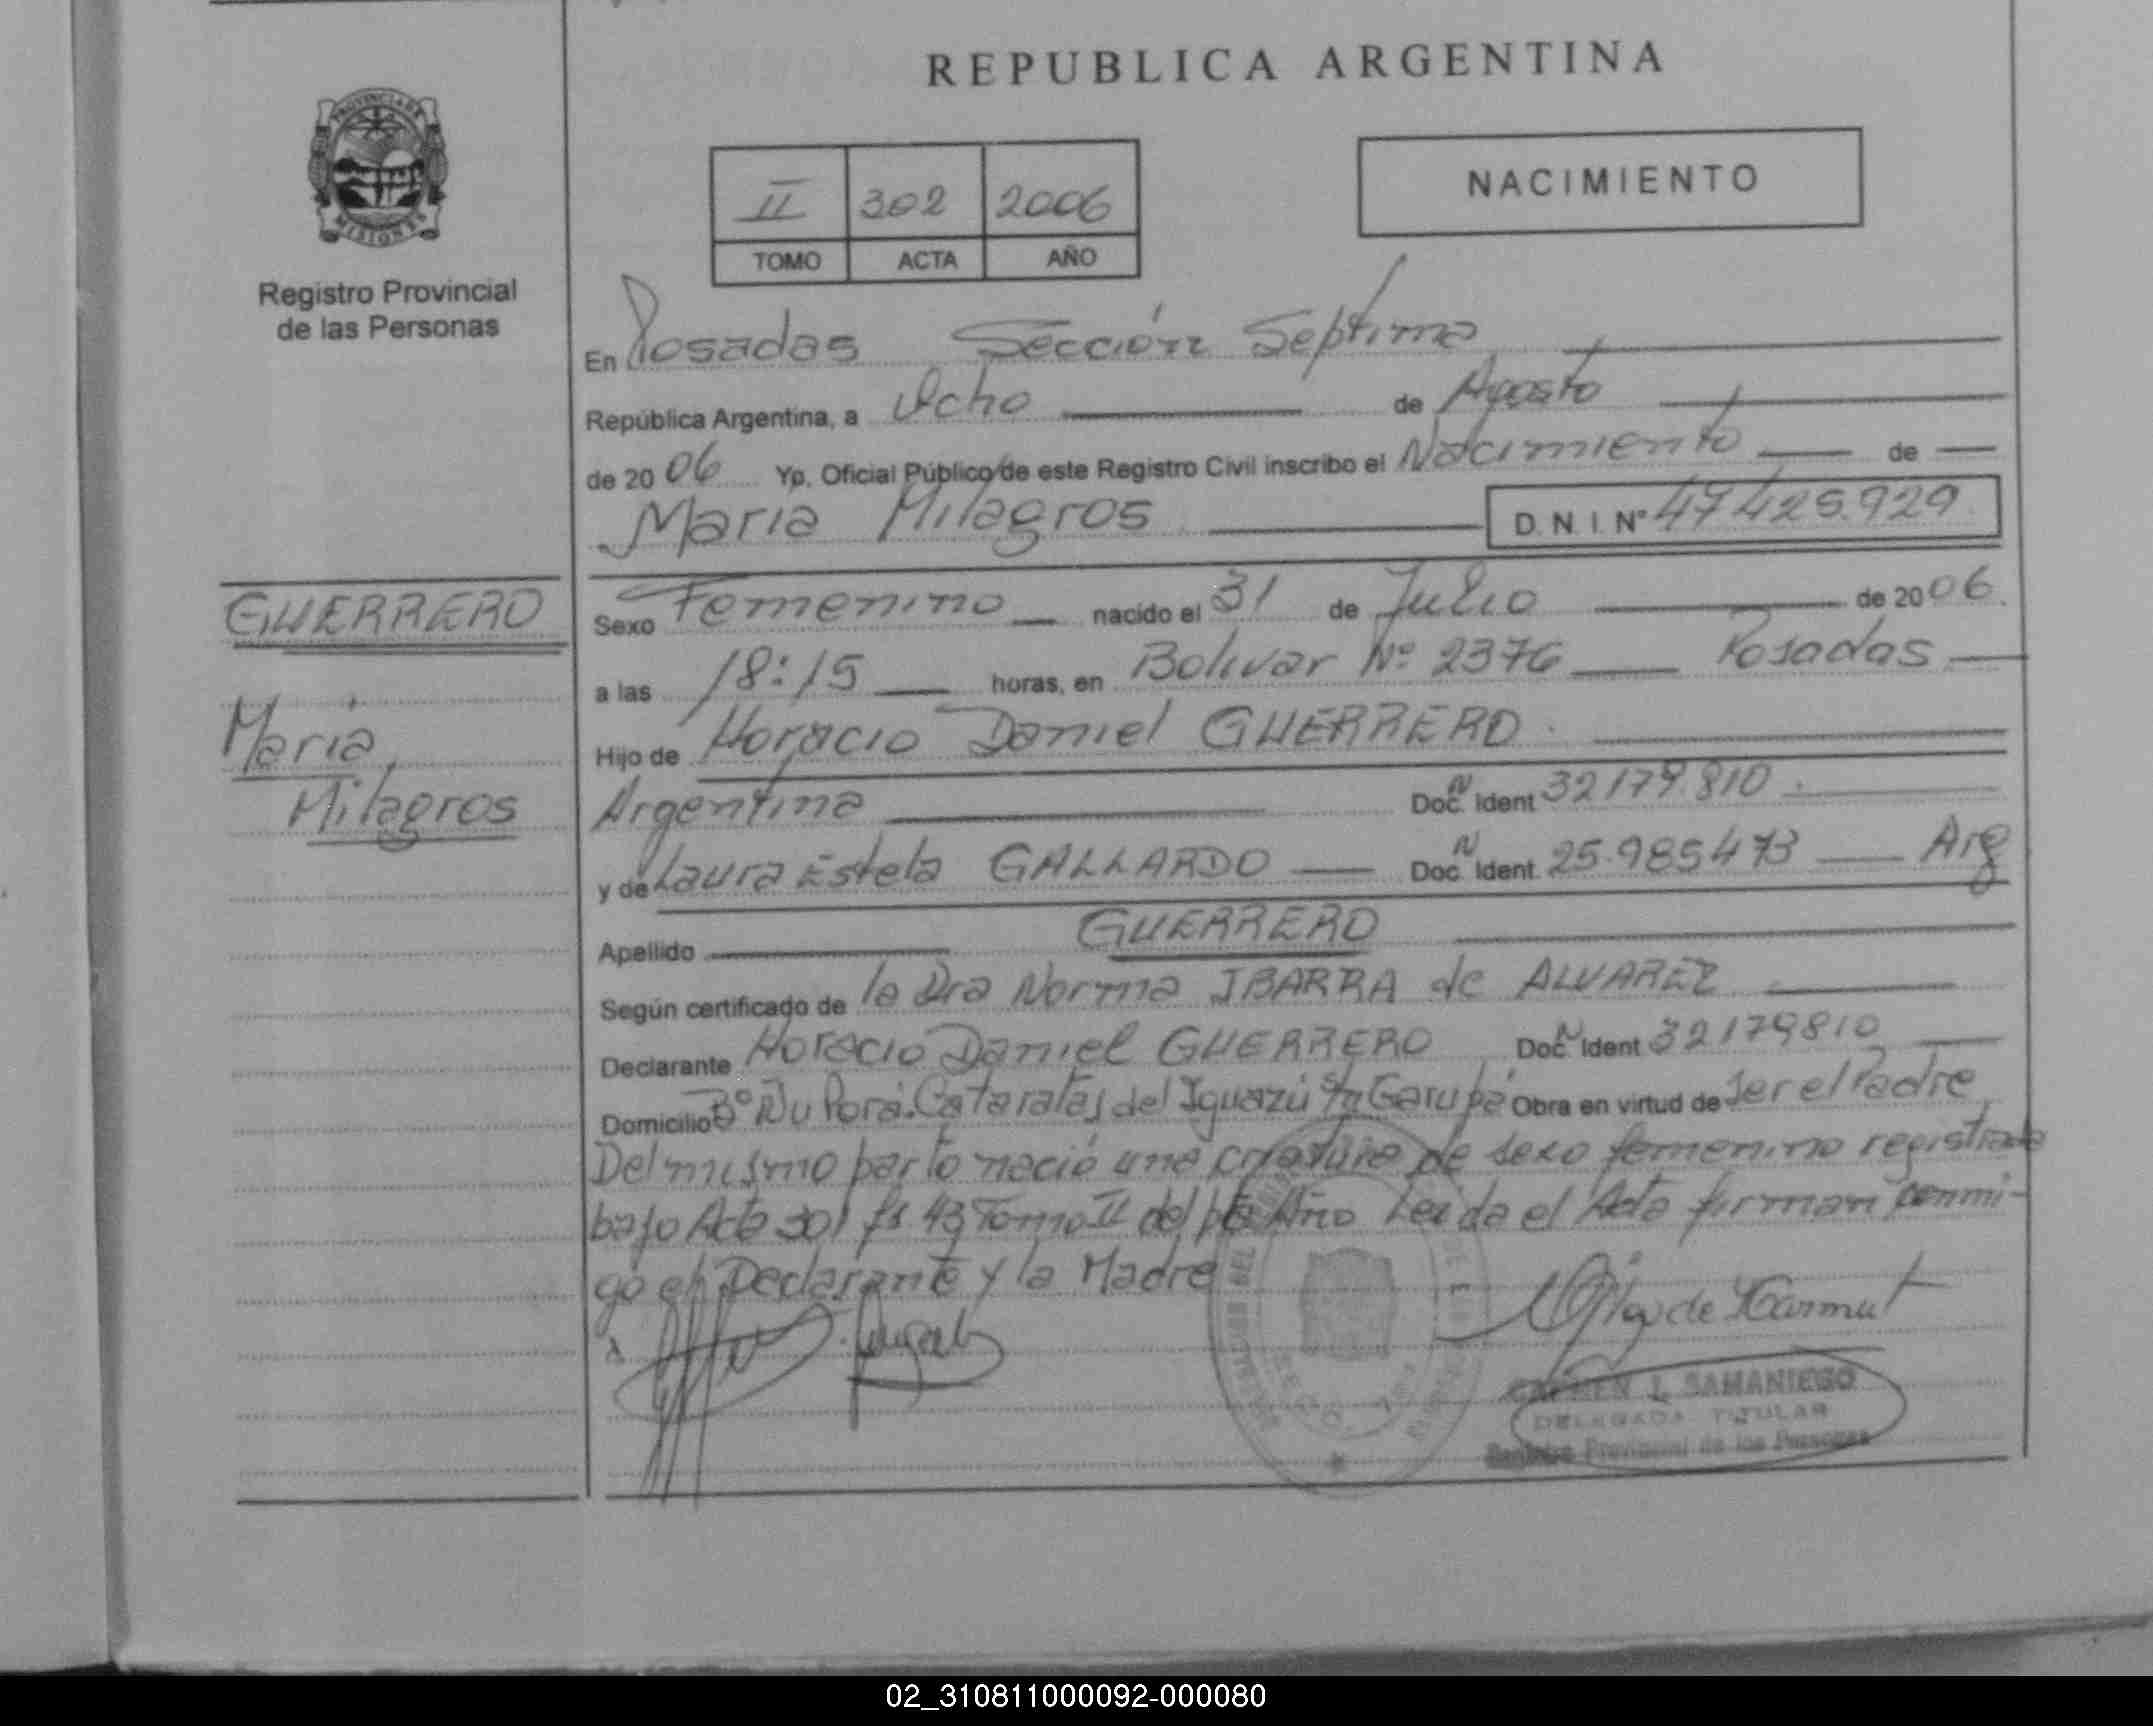 REPUBLICA ARGENTINA
PROVINCIA DE
MISIONES
Registro Provincial
de las Personas
II 302 2006
TOMO ACTA AÑO
NACIMIENTO
En Posadas Sección Septima
República Argentina, a Ocho de Agosto
de 20 06 Yo, Oficial Público de este Registro Civil inscribo el Nacimiento de
Maria Milagros D.N.I. Nº 47425.929
GUERRERO
Maria
Milagros
Sexo Femenino nacido el 31 de Julio de 20 06.
a las 18:15 horas, en Bolivar Nº 2376 Posadas
Hijo de Horacio Daniel GUERRERO
Argentina Doc. Ident 32179.810
y de Laura Estela GALLARDO Doc. Ident. 25.985473 Arg
Apellido GUERRERO
Según certificado de la Dra Norma IBARRA de ALVAREZ
Declarante Horacio Daniel GUERRERO Doc. Ident 32179810
Domicilio Bº Ñu Porá. Cataratas del Iguazú s/n Garupá Obra en virtud de ser el Padre
Del mismo parto nació una criatura de sexo femenino registrada
bajo Acta 301 fs 43 Tomo II del pte Año Leida el Acta firman conmi-
go el Declarante y la Madre
CARMEN L. SAMANIEGO
DELEGADA TITULAR
Registro Provincial de las Personas
02_310811000092-000080